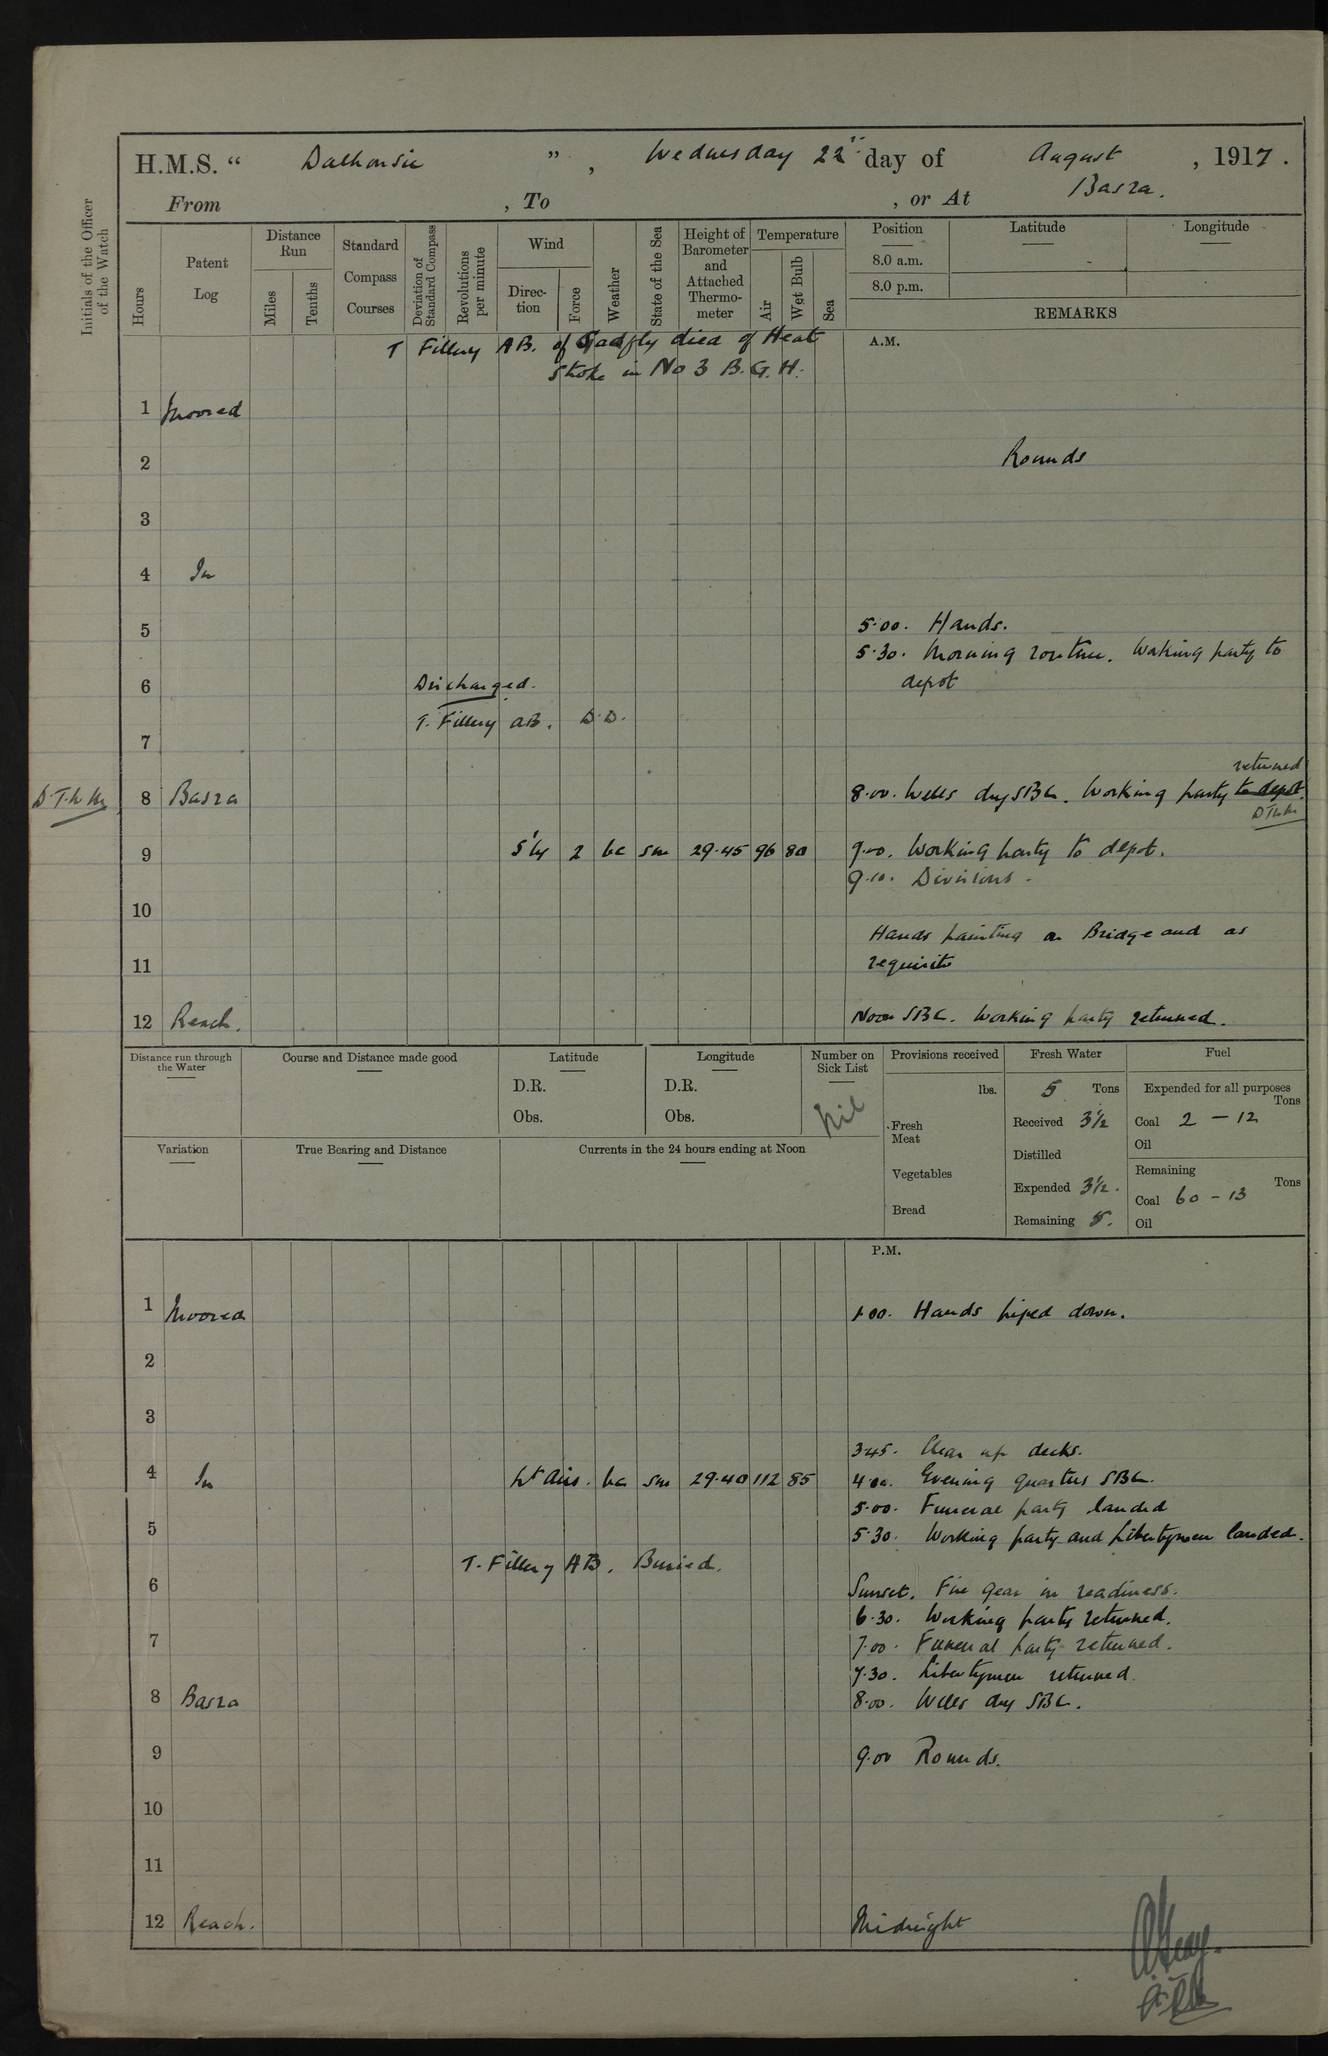 H.M.S. “ Dalhousie ”, Wednesday 22nd day of August, 1917.
From , To , or At Basra.
Initials of the Officer of the Watch
Hours
Patent Log
Distance Run
Miles
Tenths
Standard Compass Courses
Deviation of Standard Compass
Revolutions per minute
Wind
Direction
Force
Weather
State of the Sea
Height of Barometer and Attached Thermometer
Temperature
Air
Wet Bulb
Sea
Position
8.0 a.m.
8.0 p.m.
Latitude
Longitude
REMARKS
T Fillery AB. of Gadfly died of Heat
Stroke in No 3 B.G.H.
A.M.
1 Moored
2 Rounds
3
4 In
5 5.00. Hands.
5.30. Morning routine. Working party to
6 Discharged. depot
T. Fillery AB. D.D.
7
returned
D.T.h.M 8 Basra 8.00. Wells dry SBC. Working party to depot.
9 S'ly 2 bc sm 29.45 96 80 9.00. Working party to depot.
9.10. Divisions.
10
Hands painting on Bridge and as
11 requisite
12 Reach. Noon SBC. Working party returned.
Distance run through the Water
Course and Distance made good
Latitude
D.R.
Obs.
Longitude
D.R.
Obs.
Number on Sick List
Nil
Provisions received
lbs.
Fresh Meat
Vegetables
Bread
Fresh Water
5 Tons
Received 3½
Distilled
Expended 3½.
Remaining 5.
Fuel
Expended for all purposes
Tons
Coal 2 - 12
Oil
Remaining
Tons
Coal 60 - 13
Oil
Variation
True Bearing and Distance
Currents in the 24 hours ending at Noon
P.M.
1 Moored 1.00. Hands piped down.
2
3
3.45. Clear up decks.
4 In Lt airs. bc sm 29.40 112 85 4.00. Evening quarters SBC.
5.00. Funeral party landed
5 5.30. Working party and Libertymen landed.
T. Fillery AB. Buried.
6 Sunset. Fire gear in readiness.
6.30. Working party returned.
7 7.00. Funeral party returned.
7.30. Libertymen returned.
8 Basra 8.00. Wells dry SBC.
9 9.00 Rounds.
10
11
12 Reach. Midnight